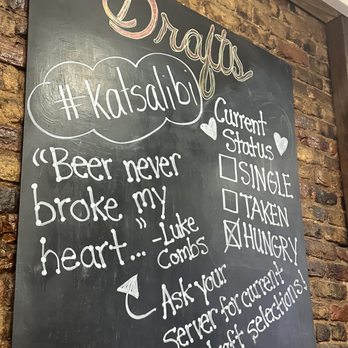 Drafts
#katsalibi
"Beer never
broke my
heart..."
-Luke
Combs
Current
Status
SINGLE
TAKEN
HUNGRY
Ask your
server for current
draft selections!